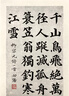 千山鳥飛絕萬
徑人蹤滅孤舟
蓑笠翁獨釣寒
江雪